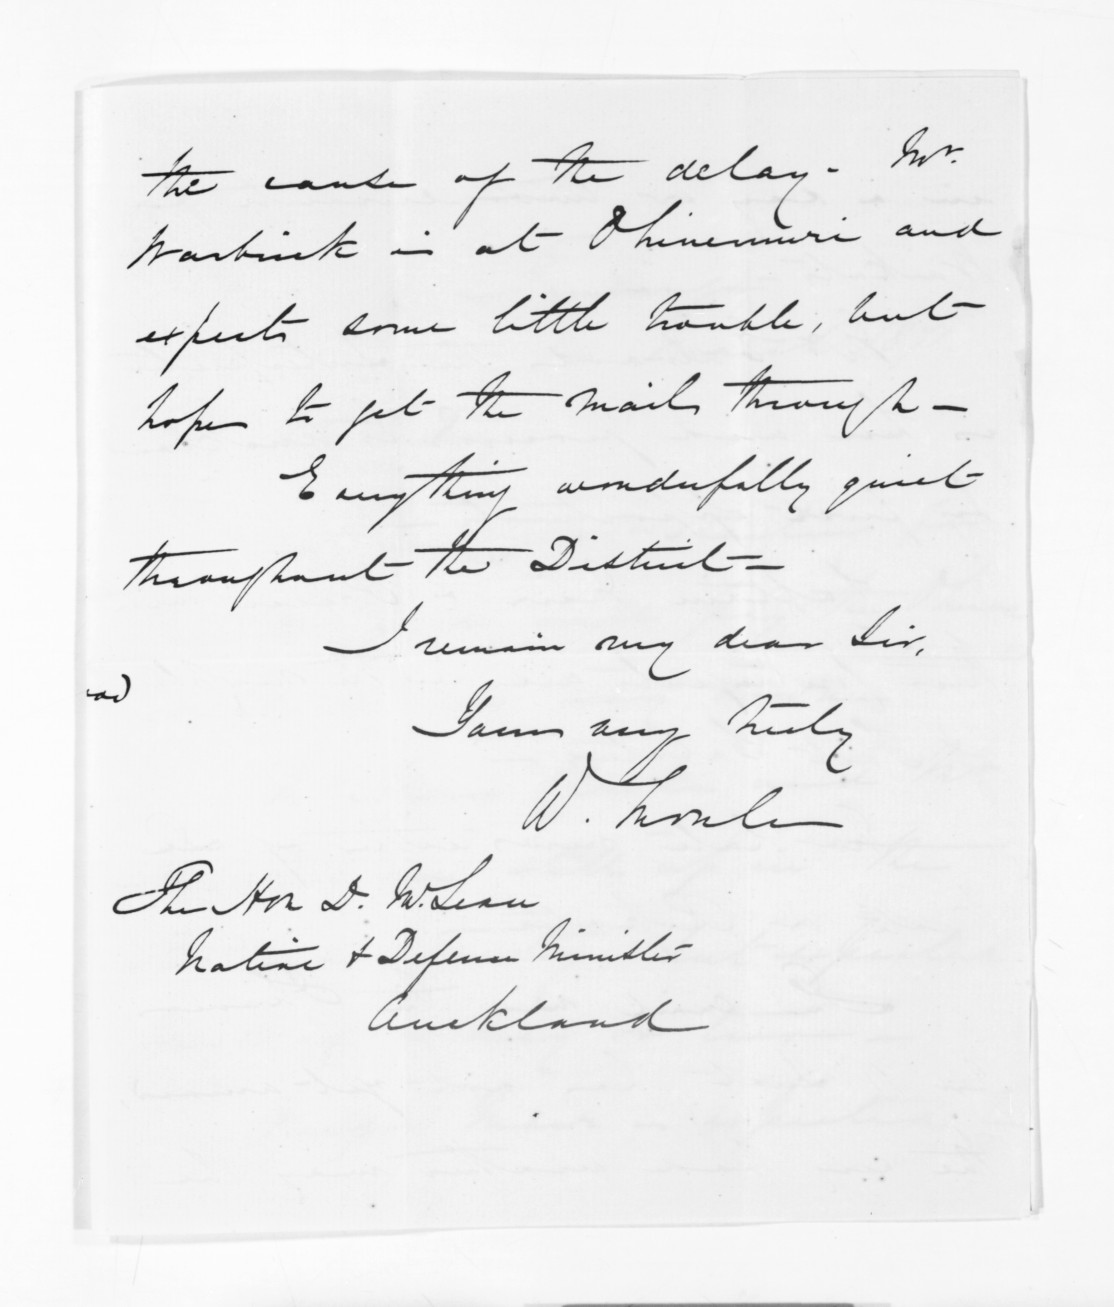 the cause of the delay - Mr.
Warbrick is at Ohinemuri and
expects some little trouble, but
hopes to get the mails through —
Everything wonderfully quiet
throughout the District —
I remain my dear Sir,
Yours very truly
W. Moule
The Hon D. McLean
Native & Defence Minister
Auckland